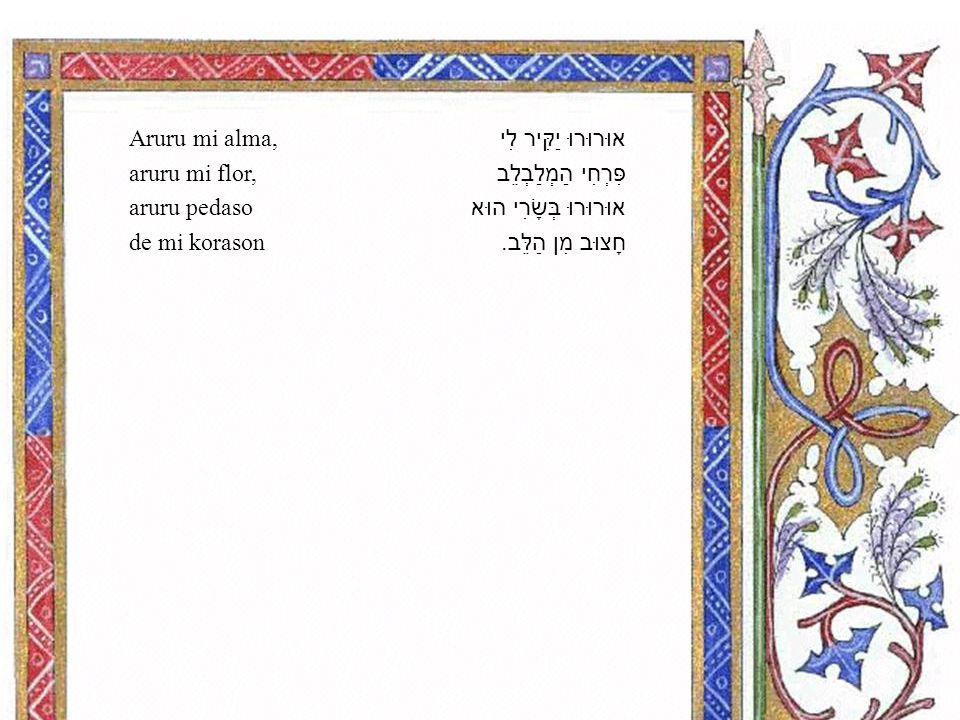 Aruru mi alma,
aruru mi flor,
aruru pedaso
de mi korason
אוּרוּרוּ יַקִּיר לִי
פִּרְחִי הַמְלַבְלֵב
אוּרוּרוּ בְּשָׂרִי הוּא
חָצוּב מִן הַלֵּב.